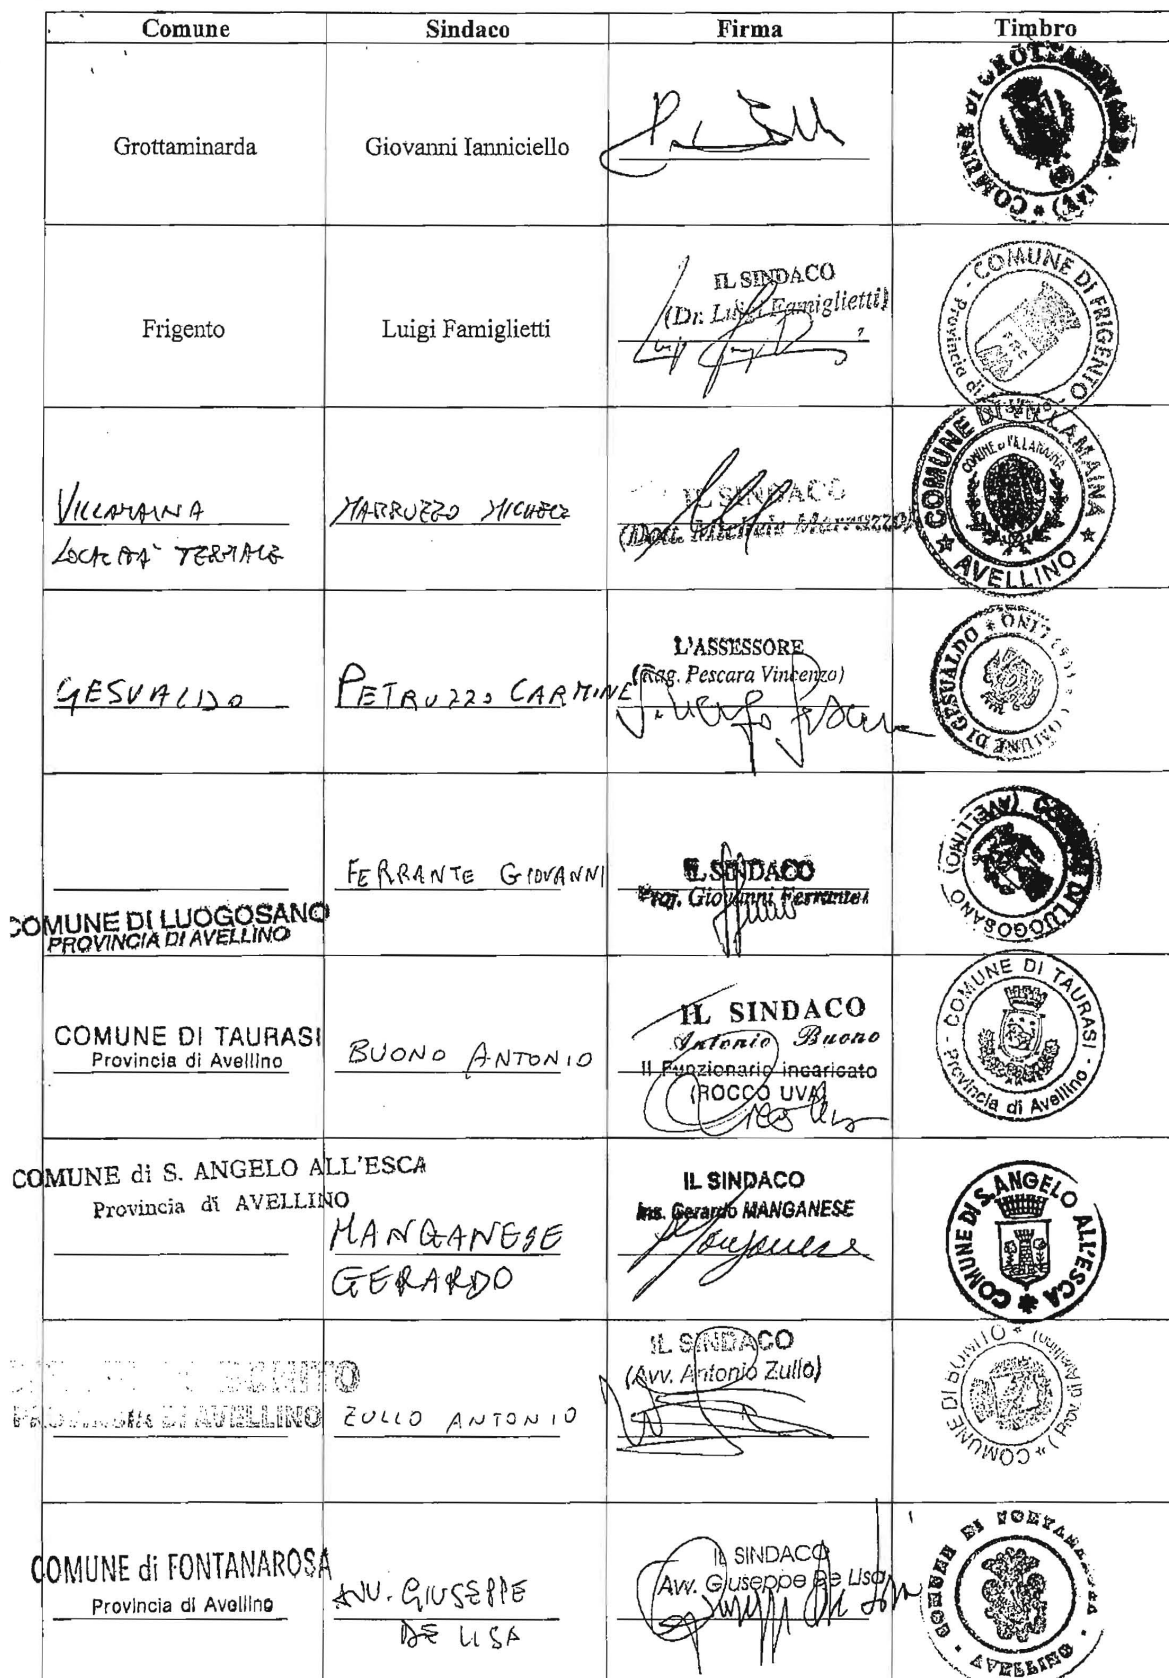 Comune Sindaco Firma Timbro
Grottaminarda Giovanni Ianniciello
COMUNE DI GROTTAMINARDA (AV)
Frigento Luigi Famiglietti
IL SINDACO
(Dr. Luigi Famiglietti)
COMUNE DI FRIGENTO - Provincia di
VILLAMAINA
LOCALITA' TERMALE
MARRUZZO MICHELE
IL SINDACO
(Dott. Michele Marruzzo)
COMUNE DI VILLAMAINA
AVELLINO
COMUNE DI VILLAMAINA
GESUALDO
PETRUZZO CARMINE
L'ASSESSORE
(Rag. Pescara Vincenzo)
Vincenzo Pescara
COMUNE DI GESUALDO
COMUNE DI LUOGOSANO
PROVINCIA DI AVELLINO
FERRANTE GIOVANNI
IL SINDACO
Prof. Giovanni Ferrante
COMUNE DI LUOGOSANO (AVELLINO)
COMUNE DI TAURASI
Provincia di Avellino
BUONO ANTONIO
IL SINDACO
Antonio Buono
Il Funzionario incaricato
(ROCCO UVA)
COMUNE DI TAURASI - Provincia di Avellino -
COMUNE di S. ANGELO ALL'ESCA
Provincia di AVELLINO
MANGANESE
GERARDO
IL SINDACO
Ins. Gerardo MANGANESE
Manganese
COMUNE DI S. ANGELO ALL'ESCA
BONITO
PROVINCIA DI AVELLINO
ZULLO ANTONIO
IL SINDACO
(Avv. Antonio Zullo)
COMUNE DI BONITO * (Prov. di Avellino) *
COMUNE di FONTANAROSA
Provincia di Avellino
AVV. GIUSEPPE
DE LISA
IL SINDACO
Avv. Giuseppe De Lisa
COMUNE DI FONTANAROSA
AVELLINO